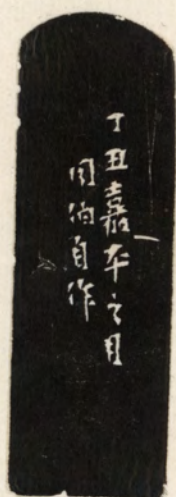 丁丑嘉平之月
伯自作